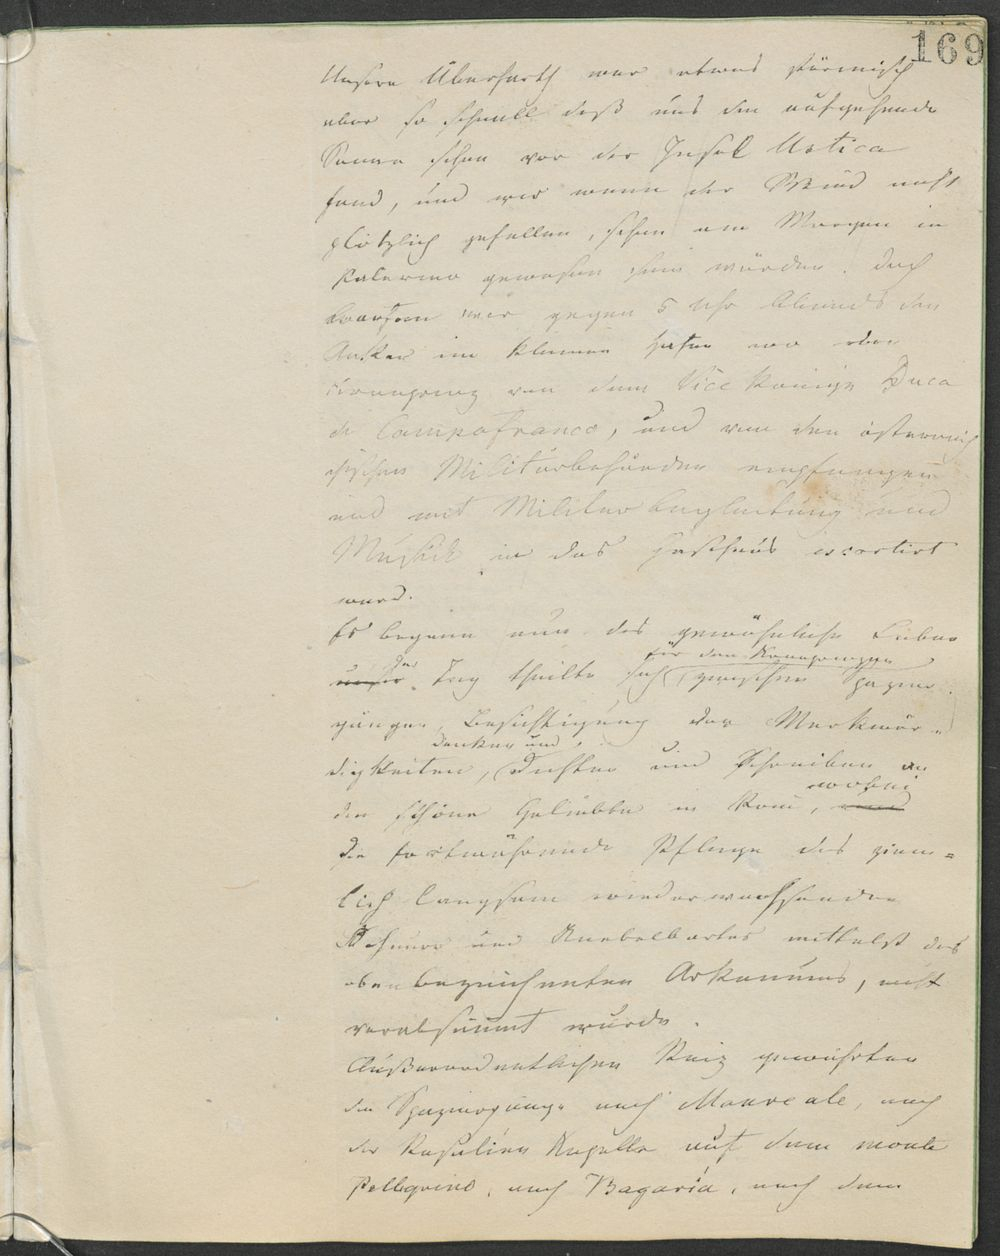 169
Unsere Überfarth war etwas stürmisch
aber so schnell daß uns die aufgehende
Sonne schon vor der Insel Ustica
fand, und wir wenn der Wind nicht
plötzlich gefallen, schon am Morgen in
Palermo gewesen sein würden. Doch
warfen wir gegen 5 Uhr Abends den
Anker im kleinen Hafen wo der
Kronprinz von dem Vice Könige Duca
di Campofranco, und von den österreich
ischen Militärbehörden empfangen
und mit Militar begleitung und
Musick in das Gasthaus escortirt
ward.
Es begann nun das gewöhnliche Leben
für den Kronprinzen
unser der Tag theilte sich zwischen Spazier
gänge, Besichtigung der Merkwür-
denken und
digkeiten, Dichten und Schreiben an
wobei
die schöne Geliebte in Rom, und
die fortwährende Pflege des ziem=
lich langsam wiederwachsenden
Schnurr und Knebelbartes mittelst des
oben bezeichneten Arkanums, nicht
verabsäumt wurde.
Außerordentlichen Reiz gewährten
die Spaziergänge nach Monreale, nach
der Rosalien Kapelle auf dem monte
Pellegrino, nach Bagaria, nach dem